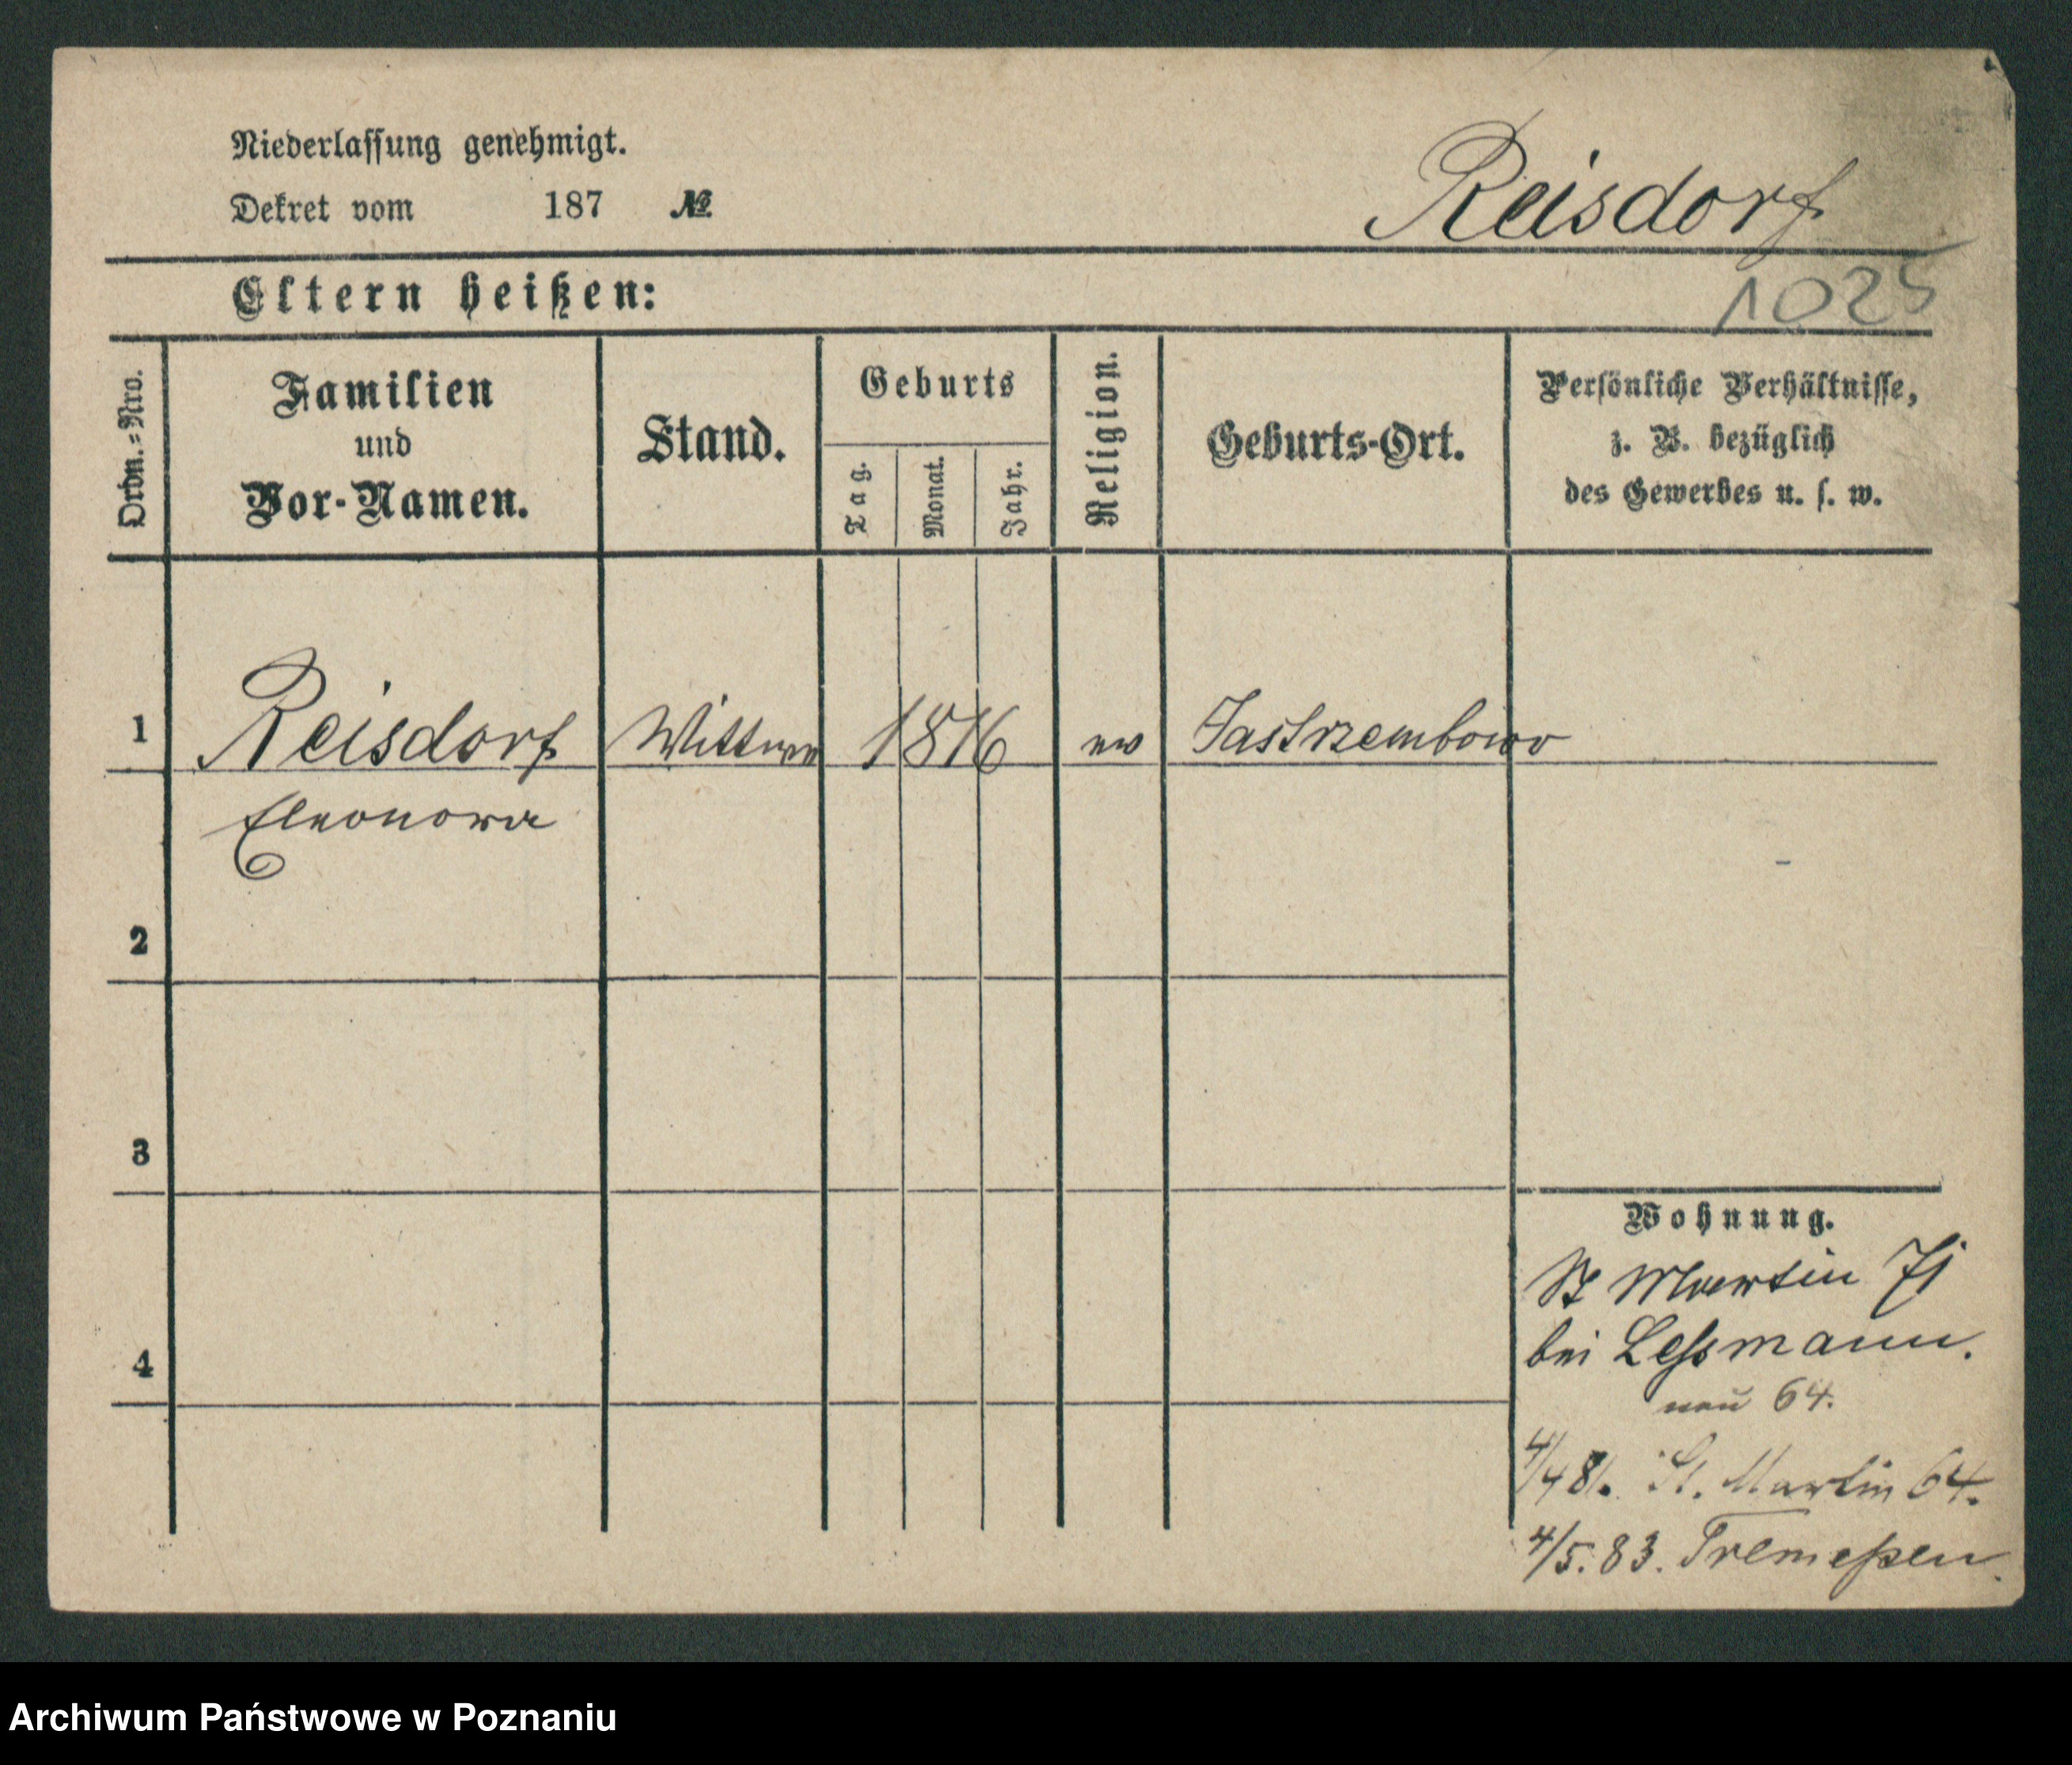 Niederlassung genehmigt.
Dekret vom 187 №
Reisdorf
Eltern heißen:
1025
Ordn.=Nro.
Familien
und
Vor-Namen.
Stand.
Geburts
Tag.
Monat.
Jahr.
Religion.
Geburts-Ort.
Persönliche Verhältnisse,
z. B. bezüglich
des Gewerbes u. s. w.
1 Reisdorf Wittwe 1816 ev Jastrzembowo
Eleonora
2
3
4
Wohnung.
St Martin 71
bei Lessmann.
neu 64.
4/4 81. St. Martin 64.
4/5. 83. Tremeßen.
Archiwum Państwowe w Poznaniu